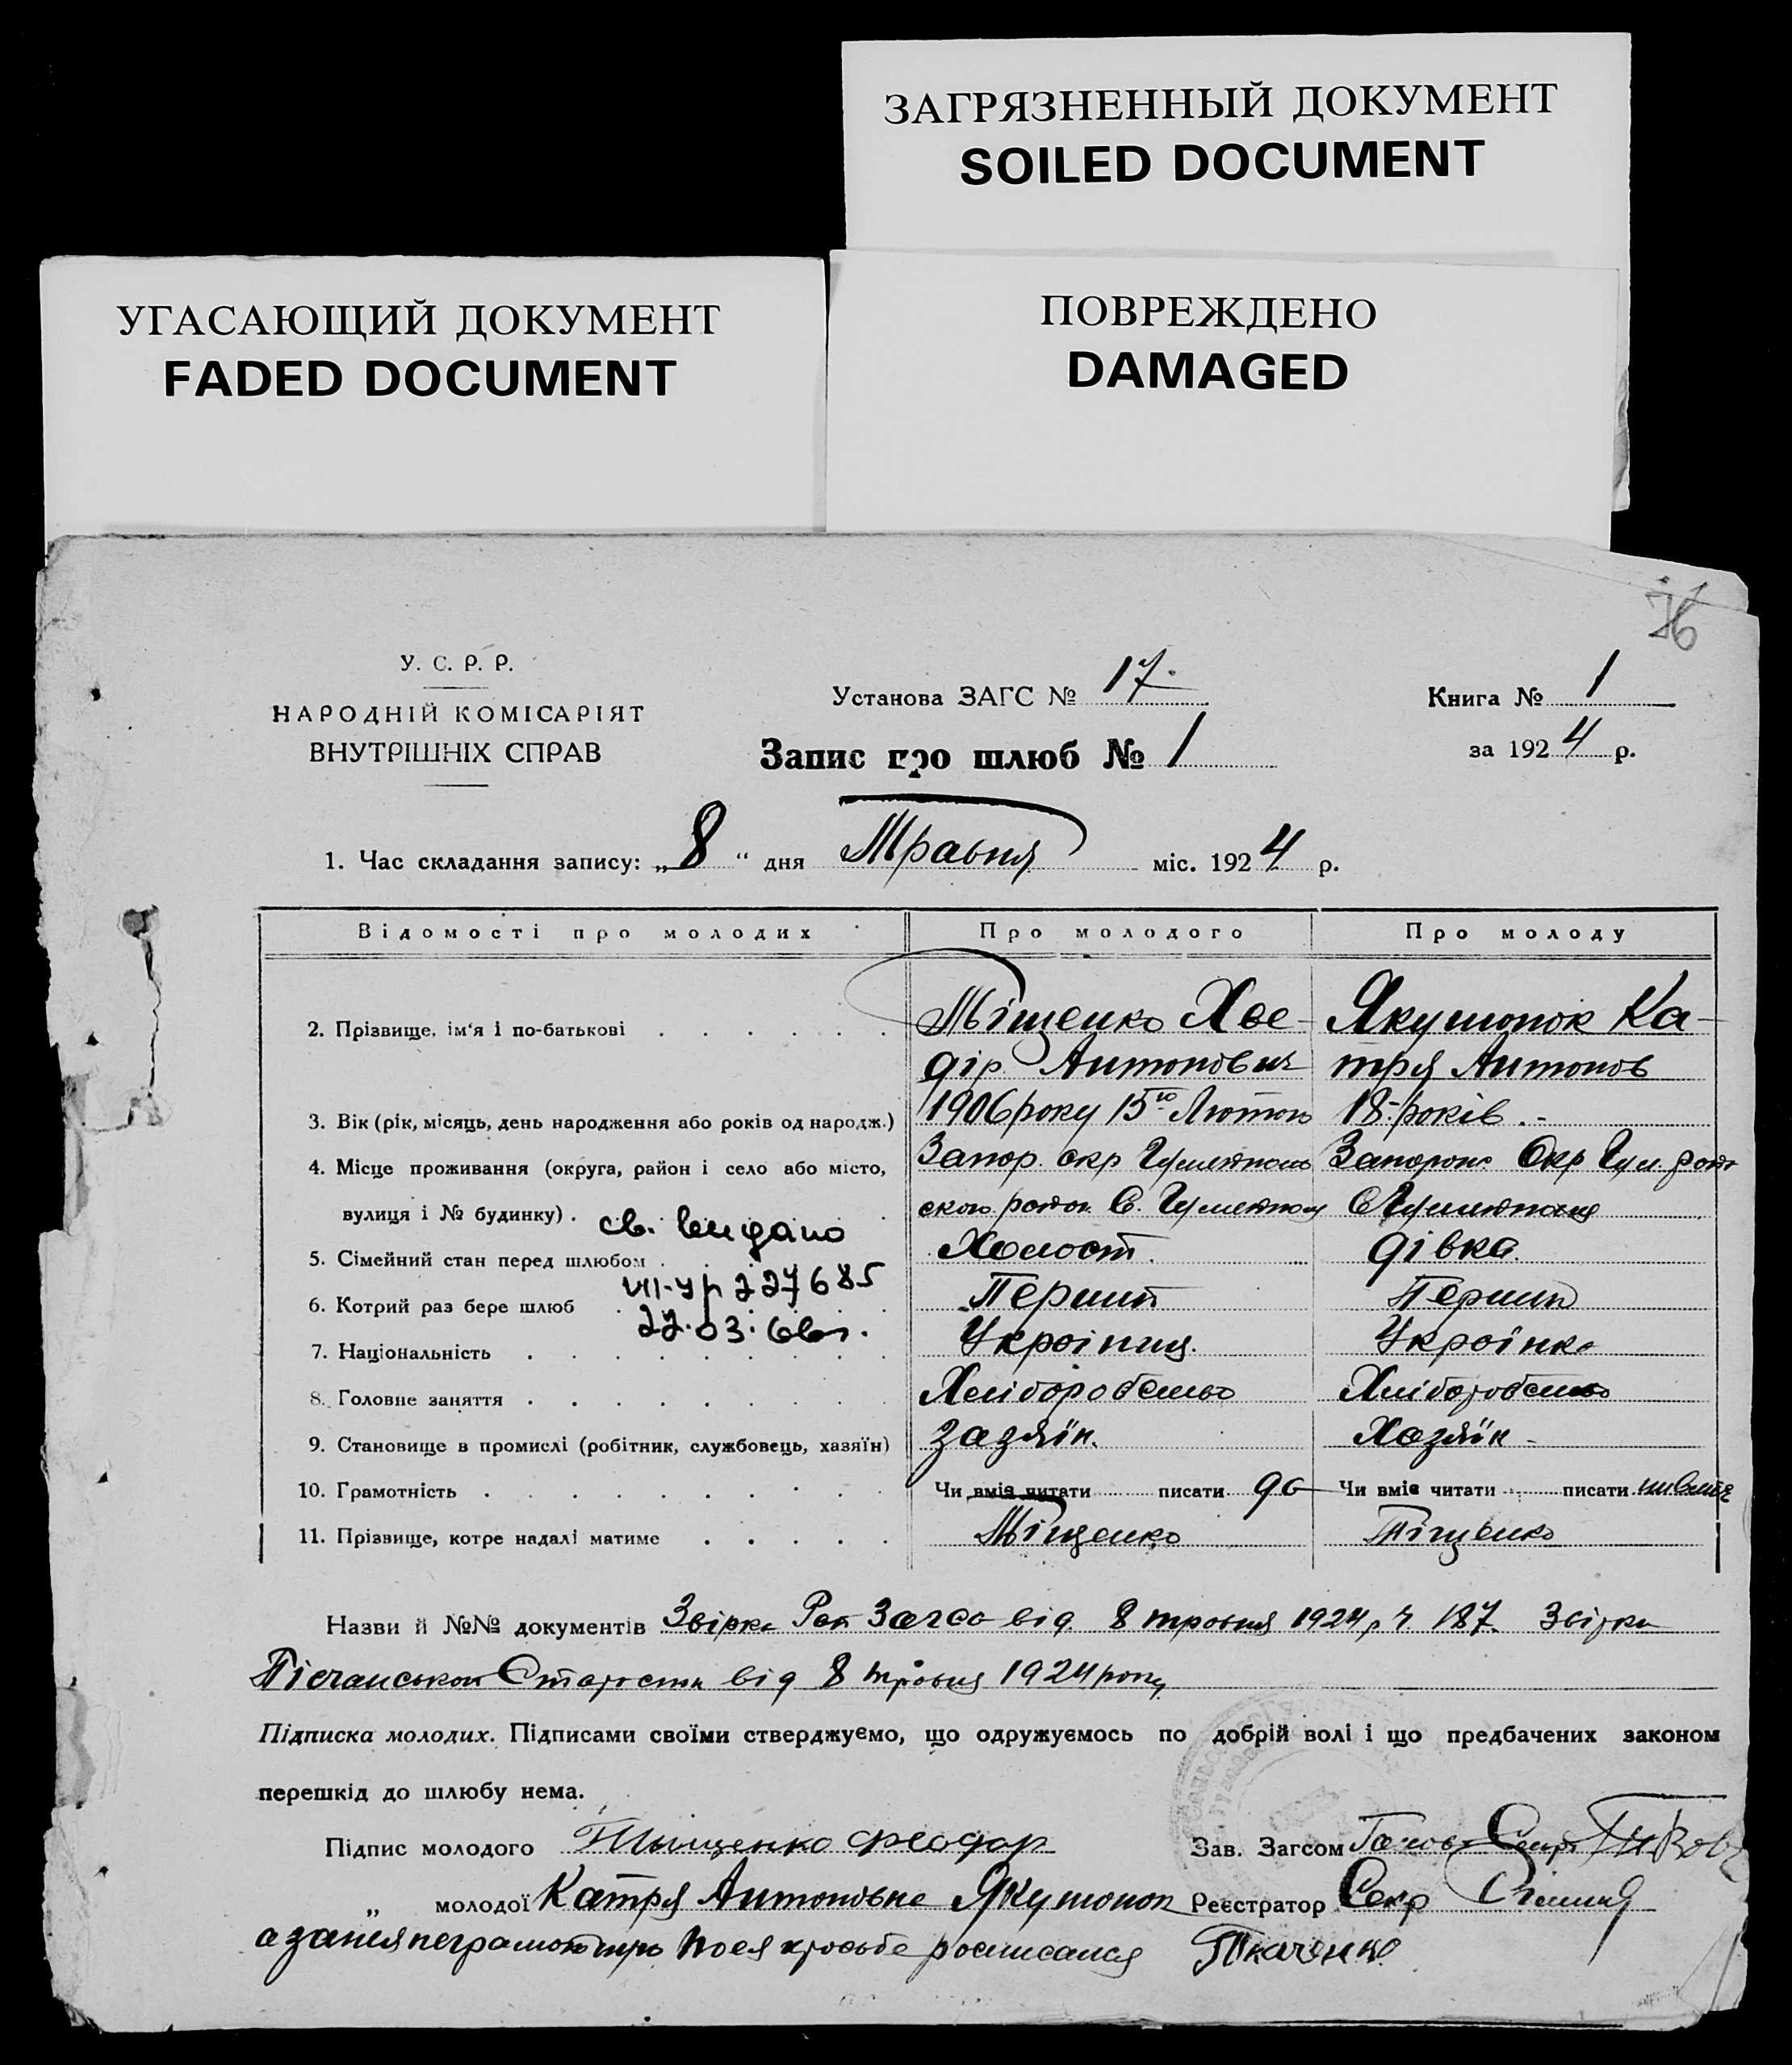 ЗАГРЯЗНЕННЫЙ ДОКУМЕНТ
SOILED DOCUMENT
УГАСАЮЩИЙ ДОКУМЕНТ
FADED DOCUMENT
ПОВРЕЖДЕНО
DAMAGED
У. С. Р. Р.
НАРОДНІЙ КОМІСАРІЯТ
ВНУТРІШНІХ СПРАВ
Установа ЗАГС № 17.
Запис про шлюб № 1
Книга № 1
за 1924 р.
1. Час складання запису: „8“ дня Травня міс. 1924 р.
Відомості про молодих Про молодого Про молоду
2. Прізвище, ім'я і по-батькові Тіщенко Хве- Якушонок Ка-
дір Антонович тря Антонов
3. Вік (рік, місяць, день народження або років од народж.) 1906 року 15го Лютого 18 років.-
4. Місце проживання (округа, район і село або місто, Запор. окр Запорож. Окр
вулиця і № будинку) . ского район. С.
св. видано
5. Сімейний стан перед шлюбом . Холост. дівка.
VII-УР 227685
6. Котрий раз бере шлюб Перший Перший
22.03.
7. Національність Україниц. Українка
8. Головне заняття Хліборобство Хліборобство
9. Становище в промислі (робітник, службовець, хазяїн) Хазяїн. Хазяїн -
10. Грамотність Чи вміє читати писати да Чи вміє читати писати
11. Прізвище, котре надалі матиме Тіщенко Тіщенко
Назви й №№ документів Звірка Рай Загса від 8 травня 1924 р ч. 187 Звірка
від 8 травня 1924 року
Підписка молодих. Підписами своїми стверджуємо, що одружуємось по добрій волі і що предбачених законом
перешкід до шлюбу нема.
Підпис молодого Тыщенко Феодор Зав. Загсом
„ молодої Катря Антоновна Якушонок Реєстратор Секр
а за нея неграмотную по ея просьбе росписался Ткаченко